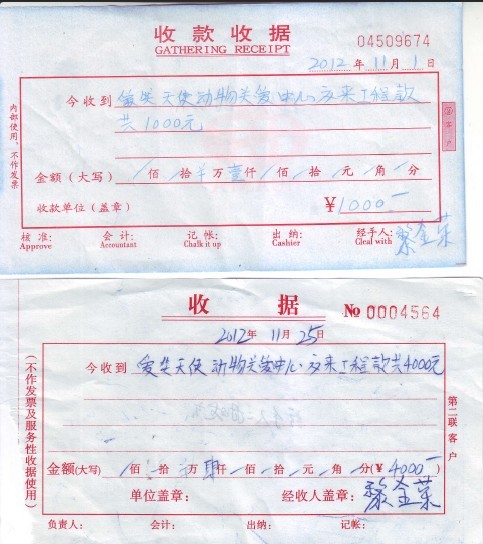 收款收据
GATHERING RECEIPT
04509674
2012 年 11 月 1 日
今收到 爱类天使动物关爱中心交来工程款
共1000元
金额（大写） 佰 拾 万 壹仟 佰 拾 元 角 分
收款单位（盖章） ￥1000一
核 准: 会 计: 记 帐: 出 纳: 经手人: 黎金荣
Approve Accountant Chalk it up Cashier Cleal with
内部使用，不作发票
客户
收 据 No 0004564
2012年 11 月 25日
今收到 爱类天使动物关爱中心交来工程款共4000元
金额(大写) 佰 拾 万 肆仟 佰 拾 元 角 分(￥ 4000一)
单位盖章: 经收人盖章: 黎金荣
负责人: 会计: 出纳: 记帐:
（不作发票及服务性收据使用）
第二联客户